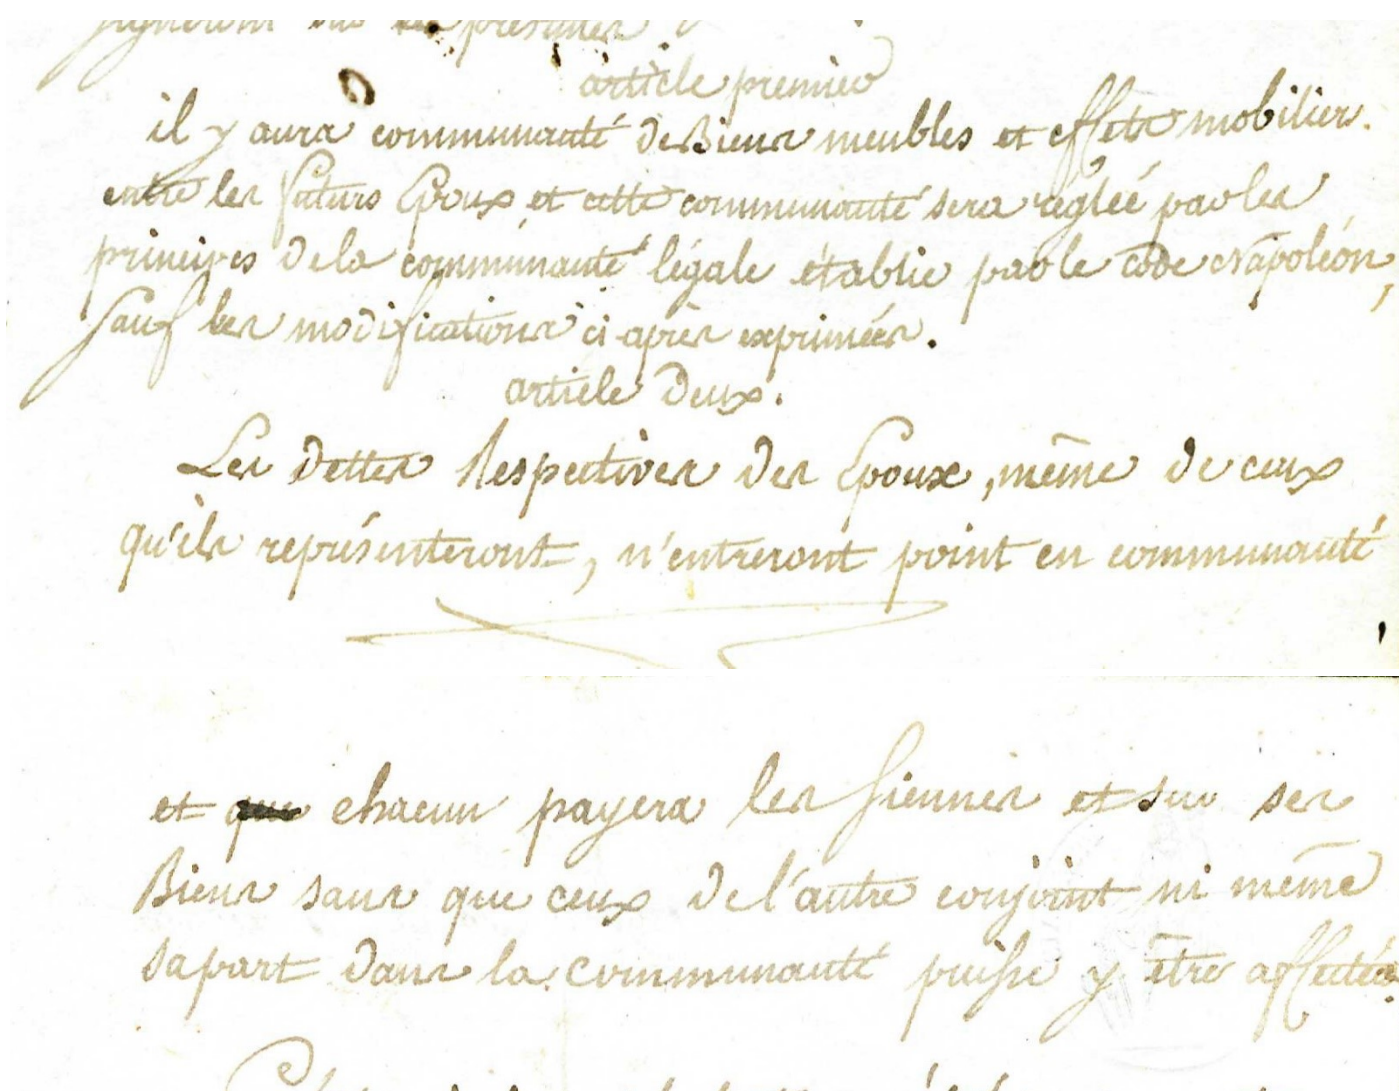 signeront
article premier
il y aura communauté de Biens meubles et effets mobilier.
entre les futurs Epoux et cette communauté sera réglée par les
principes de la communauté légale établie par le code Napoléon,
sauf les modifications ci-après exprimées.
article Deux.
Les Dettes Respectives des Epoux, même de ceux
qu'ils représenteront, n'entreront point en communauté
et chacun payera les siennes et sur ses
Biens sans que ceux de l'autre conjoint ni même
sa part dans la communauté puisse y être affectés.